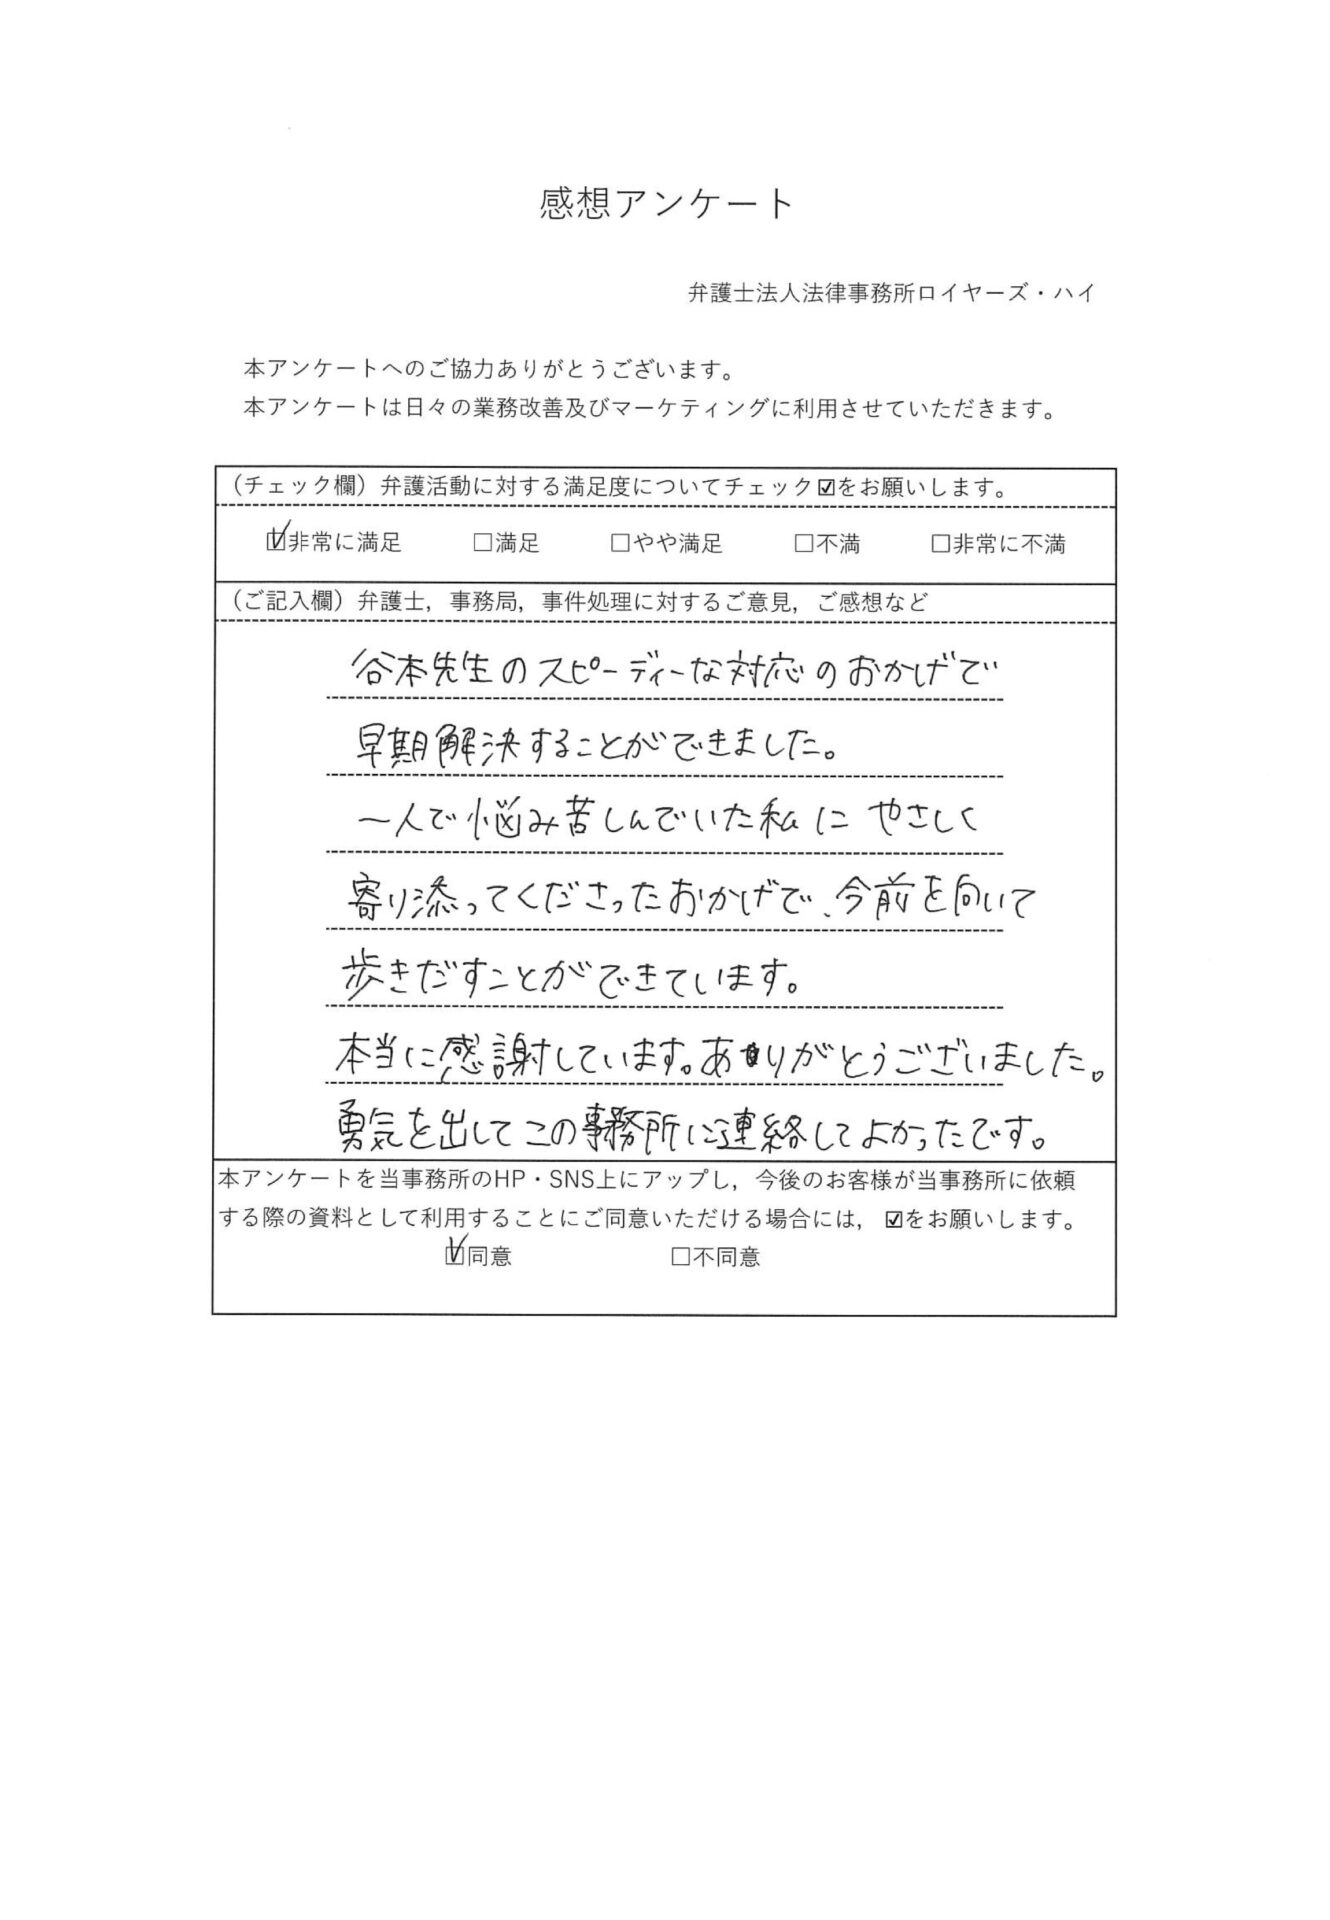 感想アンケート
弁護士法人法律事務所ロイヤーズ・ハイ
本アンケートへのご協力ありがとうございます。
本アンケートは日々の業務改善及びマーケティングに利用させていただきます。
（チェック欄）弁護活動に対する満足度についてチェック☑をお願いします。
☑非常に満足 □満足 □やや満足 □不満 □非常に不満
（ご記入欄）弁護士，事務局，事件処理に対するご意見，ご感想など
谷本先生のスピーディーな対応のおかげで
早期解決することができました。
一人で悩み苦しんでいた私にやさしく
寄り添ってくださったおかげで、今前を向いて
歩きだすことができています。
本当に感謝しています。ありがとうございました。
勇気を出してこの事務所に連絡してよかったです。
本アンケートを当事務所のHP・SNS上にアップし，今後のお客様が当事務所に依頼
する際の資料として利用することにご同意いただける場合には，☑をお願いします。
☑同意 □不同意